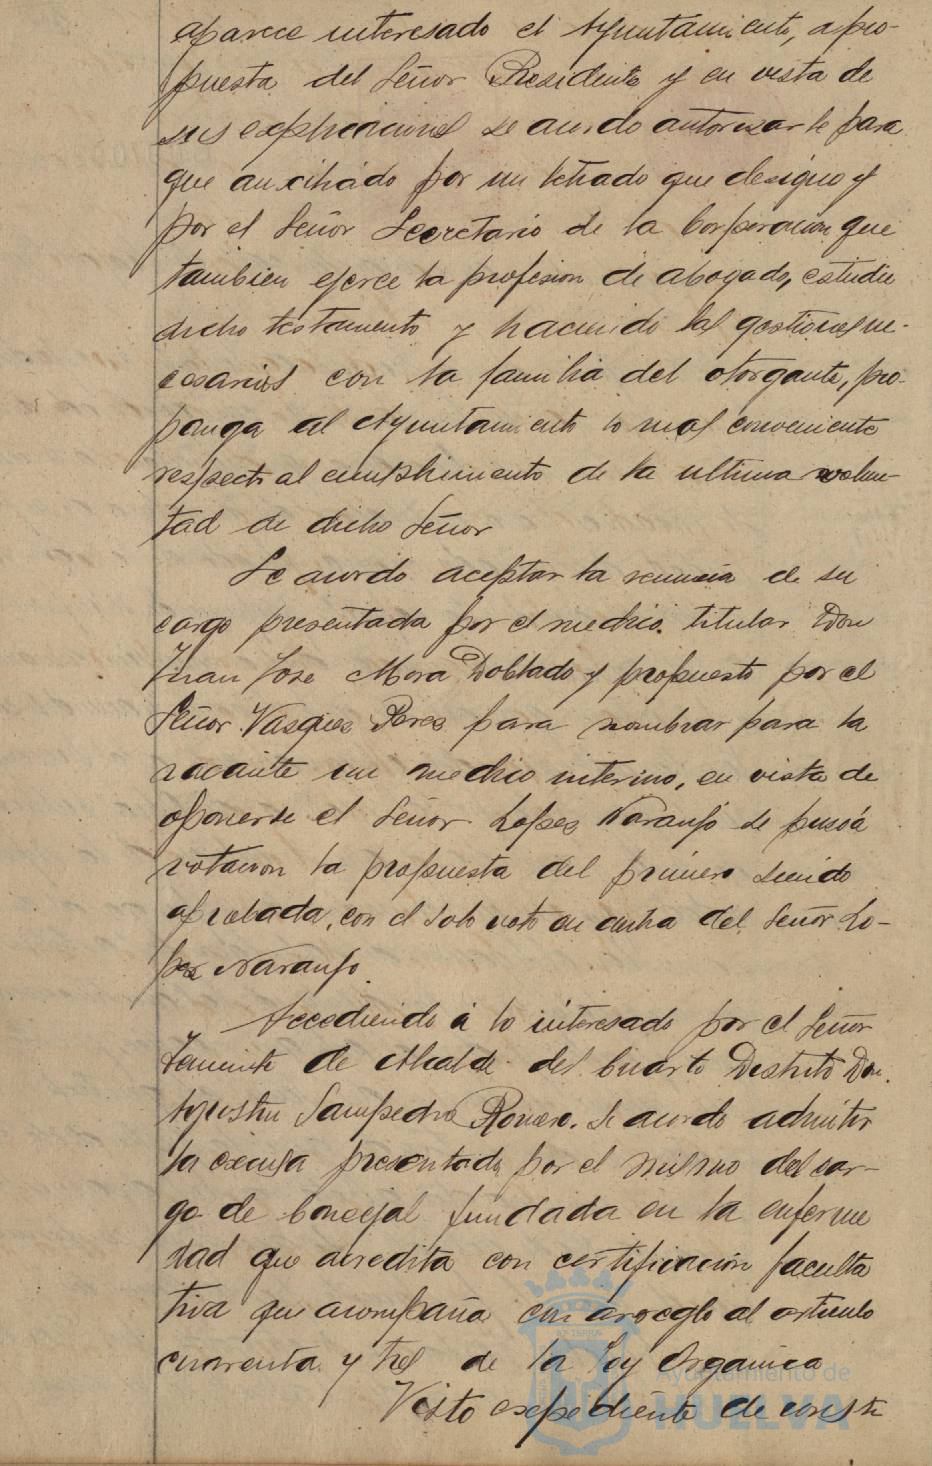 aparece interesado el Ayuntamiento, a pro-
puesta del Señor Presidente y en vista de
sus esplicaciones se acordo autorizarle para
que auxiliado por un letrado que designo y
por el Señor Secretario de la Corporacion que
tambien ejerce la profesion de abogado, estudie
dicho testamento y haciendo las gestiones ne-
cesarias con la familia del otorgante, pro-
ponga al Ayuntamiento lo mas conveniente
respecto al cumplimiento de la ultima volun-
tad de dicho Señor
Se acordo aceptar la renuncia de su
cargo presentada por el medico titular Don
Juan Jose Mora Doblado y propuesto por el
Señor Vasquez Perez para nombrar para la
vacante un medico interino, en vista de
oponerse el Señor Lopez Naranjo se puso á
votacion la propuesta del primero siendo
aprobada, con el solo voto en contra del Señor Lo-
pez Naranjo.
Accediendo á lo interesado por el Señor
Teniente de Alcalde del Cuarto Distrito Don
Agustin Sampedro Romero. Se acordo admitir
la excusa presentada por el mismo del car-
go de Concejal fundada en la enferme
dad que acredita con certificacion faculta
tiva que acompaña con arreglo al articulo
cuarenta y tres de la Ley Organica
Visto expediente de consti
Ayuntamiento de
HUELVA